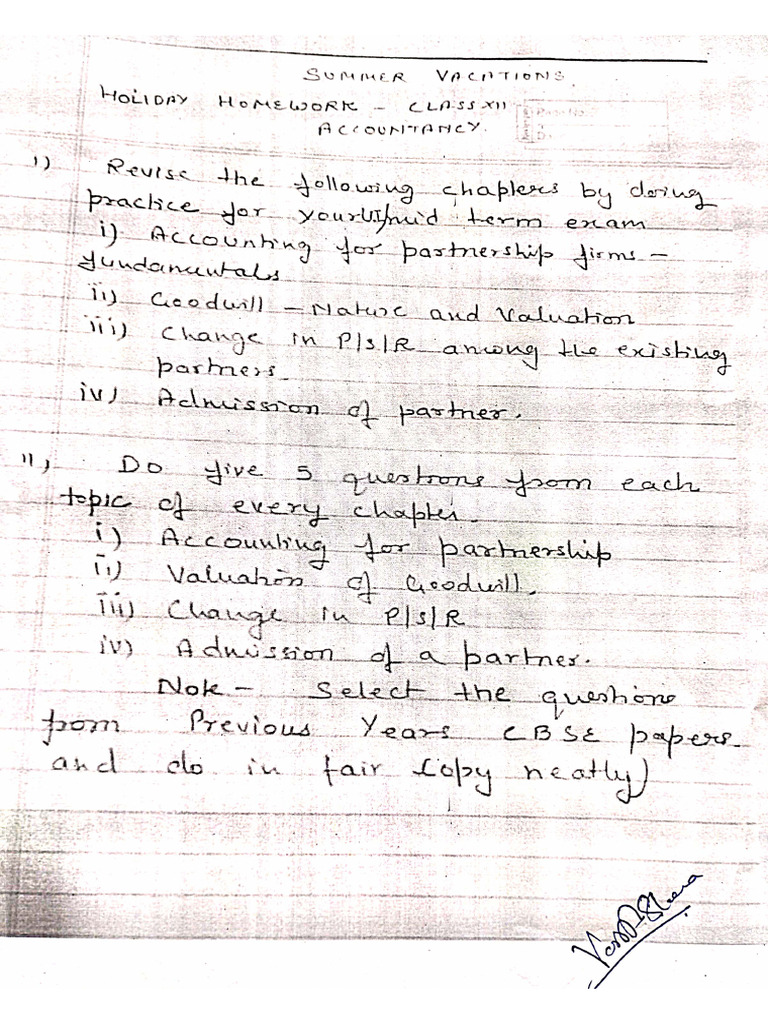 SUMMER VACATIONS
HOLIDAY HOMEWORK - CLASS XII
ACCOUNTANCY.
1) Revise the following chapters by doing
practice for your UT/mid term exam
i) Accounting for partnership firms -
fundamentals
ii) Goodwill - Nature and Valuation
iii) Change in P/S/R among the existing
partners.
iv) Admission of partner.
11, Do five 5 questions from each
topic of every chapter.
i) Accounting for partnership
ii) Valuation of Goodwill.
iii) Change in P/S/R
iv) Admission of a partner.
Note - Select the questions
from Previous Years CBSE papers
and do in fair copy neatly)